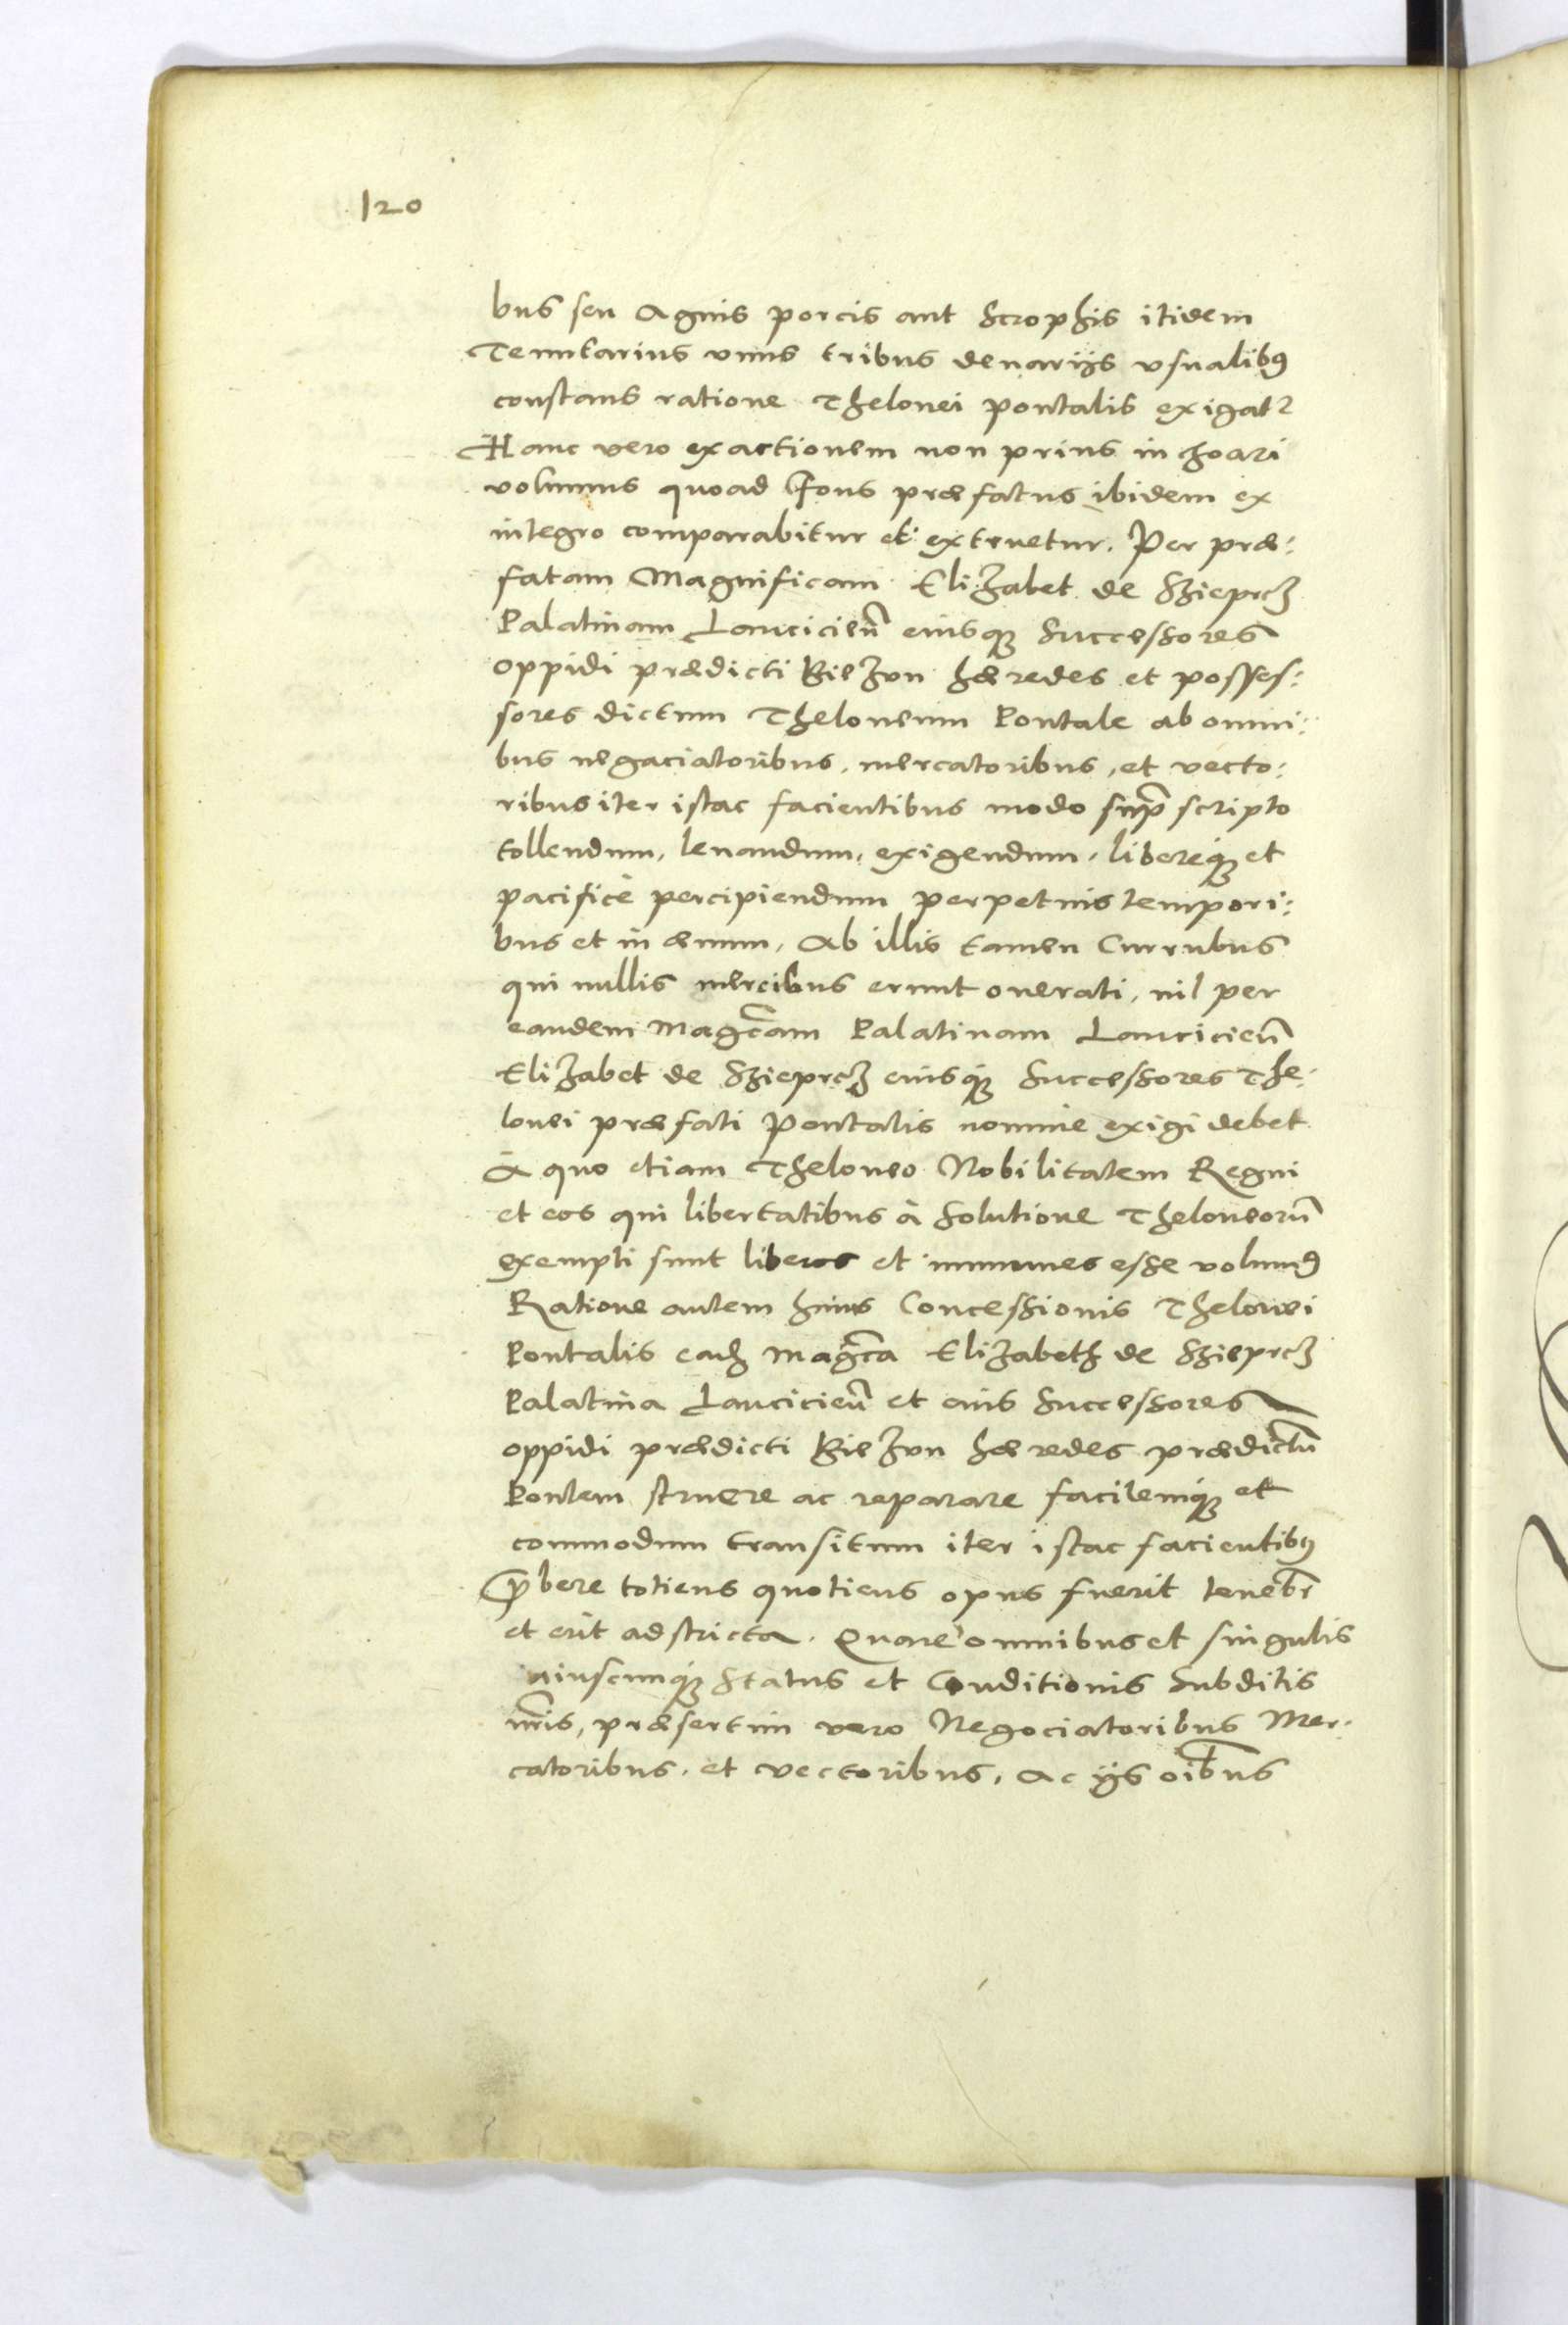 120
bus seu Agnis porcis aut Scrophis itidem
Ternarius unus tribus denarijs vsualibꝰ
constans ratione Thelonei pontalis exigat᷑
Hanc vero exactionem non prius inchoari
volumus quoad Pons præfatus ibidem ex
integro comparabitur et extruetur. Per præ:
fatam Magnificam Elizabet de Szieprcz
Palatinam Lanciciēn eiusqꝫ Successores
oppidi prædicti Biezvn hæredes et posses:
sores dictum Theloneum Pontale ab omni:
bus negaciatoribus, mercatoribus, et vecto:
ribus iter istac facientibus modo sup̄scripto
tollendum, leuandum, exigendum, libereqꝫ et
pacificè percipiendum perpetuis tempori:
bus et in æuum, Ab illis tamen Currubus
qui nullis mercibus erunt onerati, nil per
eandem Magc̄am Palatinam Lanciciēn
Elizabet de Szieprcz eiusqꝫ Successores The:
lonei præfati Pontalis nomine exigi debet
à quo etiam Theloneo Nobilitatem Regni
et eos qui libertatibus à Solutione Theloneorū
exempti sunt liberos et immunes esse volumꝰ
Ratione autem huius Concessionis Thelonei
Pontalis eadꝫ Magc̄a Elizabeth de Szieprcz
Palatina Lanciciēn et eius Successores
oppidi prædicti Biezvn hæredes prædictū
Pontem struere ac reparare facilemqꝫ et
commodum transitum iter istac facientibꝰ
p̄bere totiens quotiens opus fuerit teneb̄r
et erit adstricta. Quare omnibus et singulis
cuiuscunqꝫ Status et Conditionis Subditis
nr̄is, præsertim vero Negociatoribus Mer:
catoribus, et vectoribus, Ac ijs oīb̄us